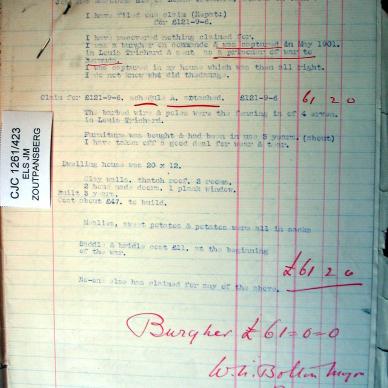 I have filed one claim (Repat:)
for £121-9-6
I have recovered nothing claimed for.
I was a burgher on commando & was captured in May 1901.
in Louis Trichard & sent as a prisoner of war to
I was captured in my house which was then all right.
I do not know who did the damage.
Claim for £121-9-6, schedule A, attached. £121-9-6 61 2 0
The barbed wire & poles were the fencing in of 4 erven
in Louis Trichard.
Furniture was bought & had been in use 3 years. (about)
I have taken off a good deal for wear & tear.
Dwelling house was 20 x 12.
Clay walls, thatch roof, 2 rooms,
2 home made doors, 1 plank window.
Built 3 years.
Cost about £47. to build.
Mealies, sweet potatoes & potatoes were all in sacks
Saddle & bridle cost £11. at the beginning
of the war.
£61 2 0
No-one else has claimed for any of the above.
Burgher £61=0=0
W.H. Bolton Major
CJC 1261/423
ELS JM
ZOUTPANSBERG